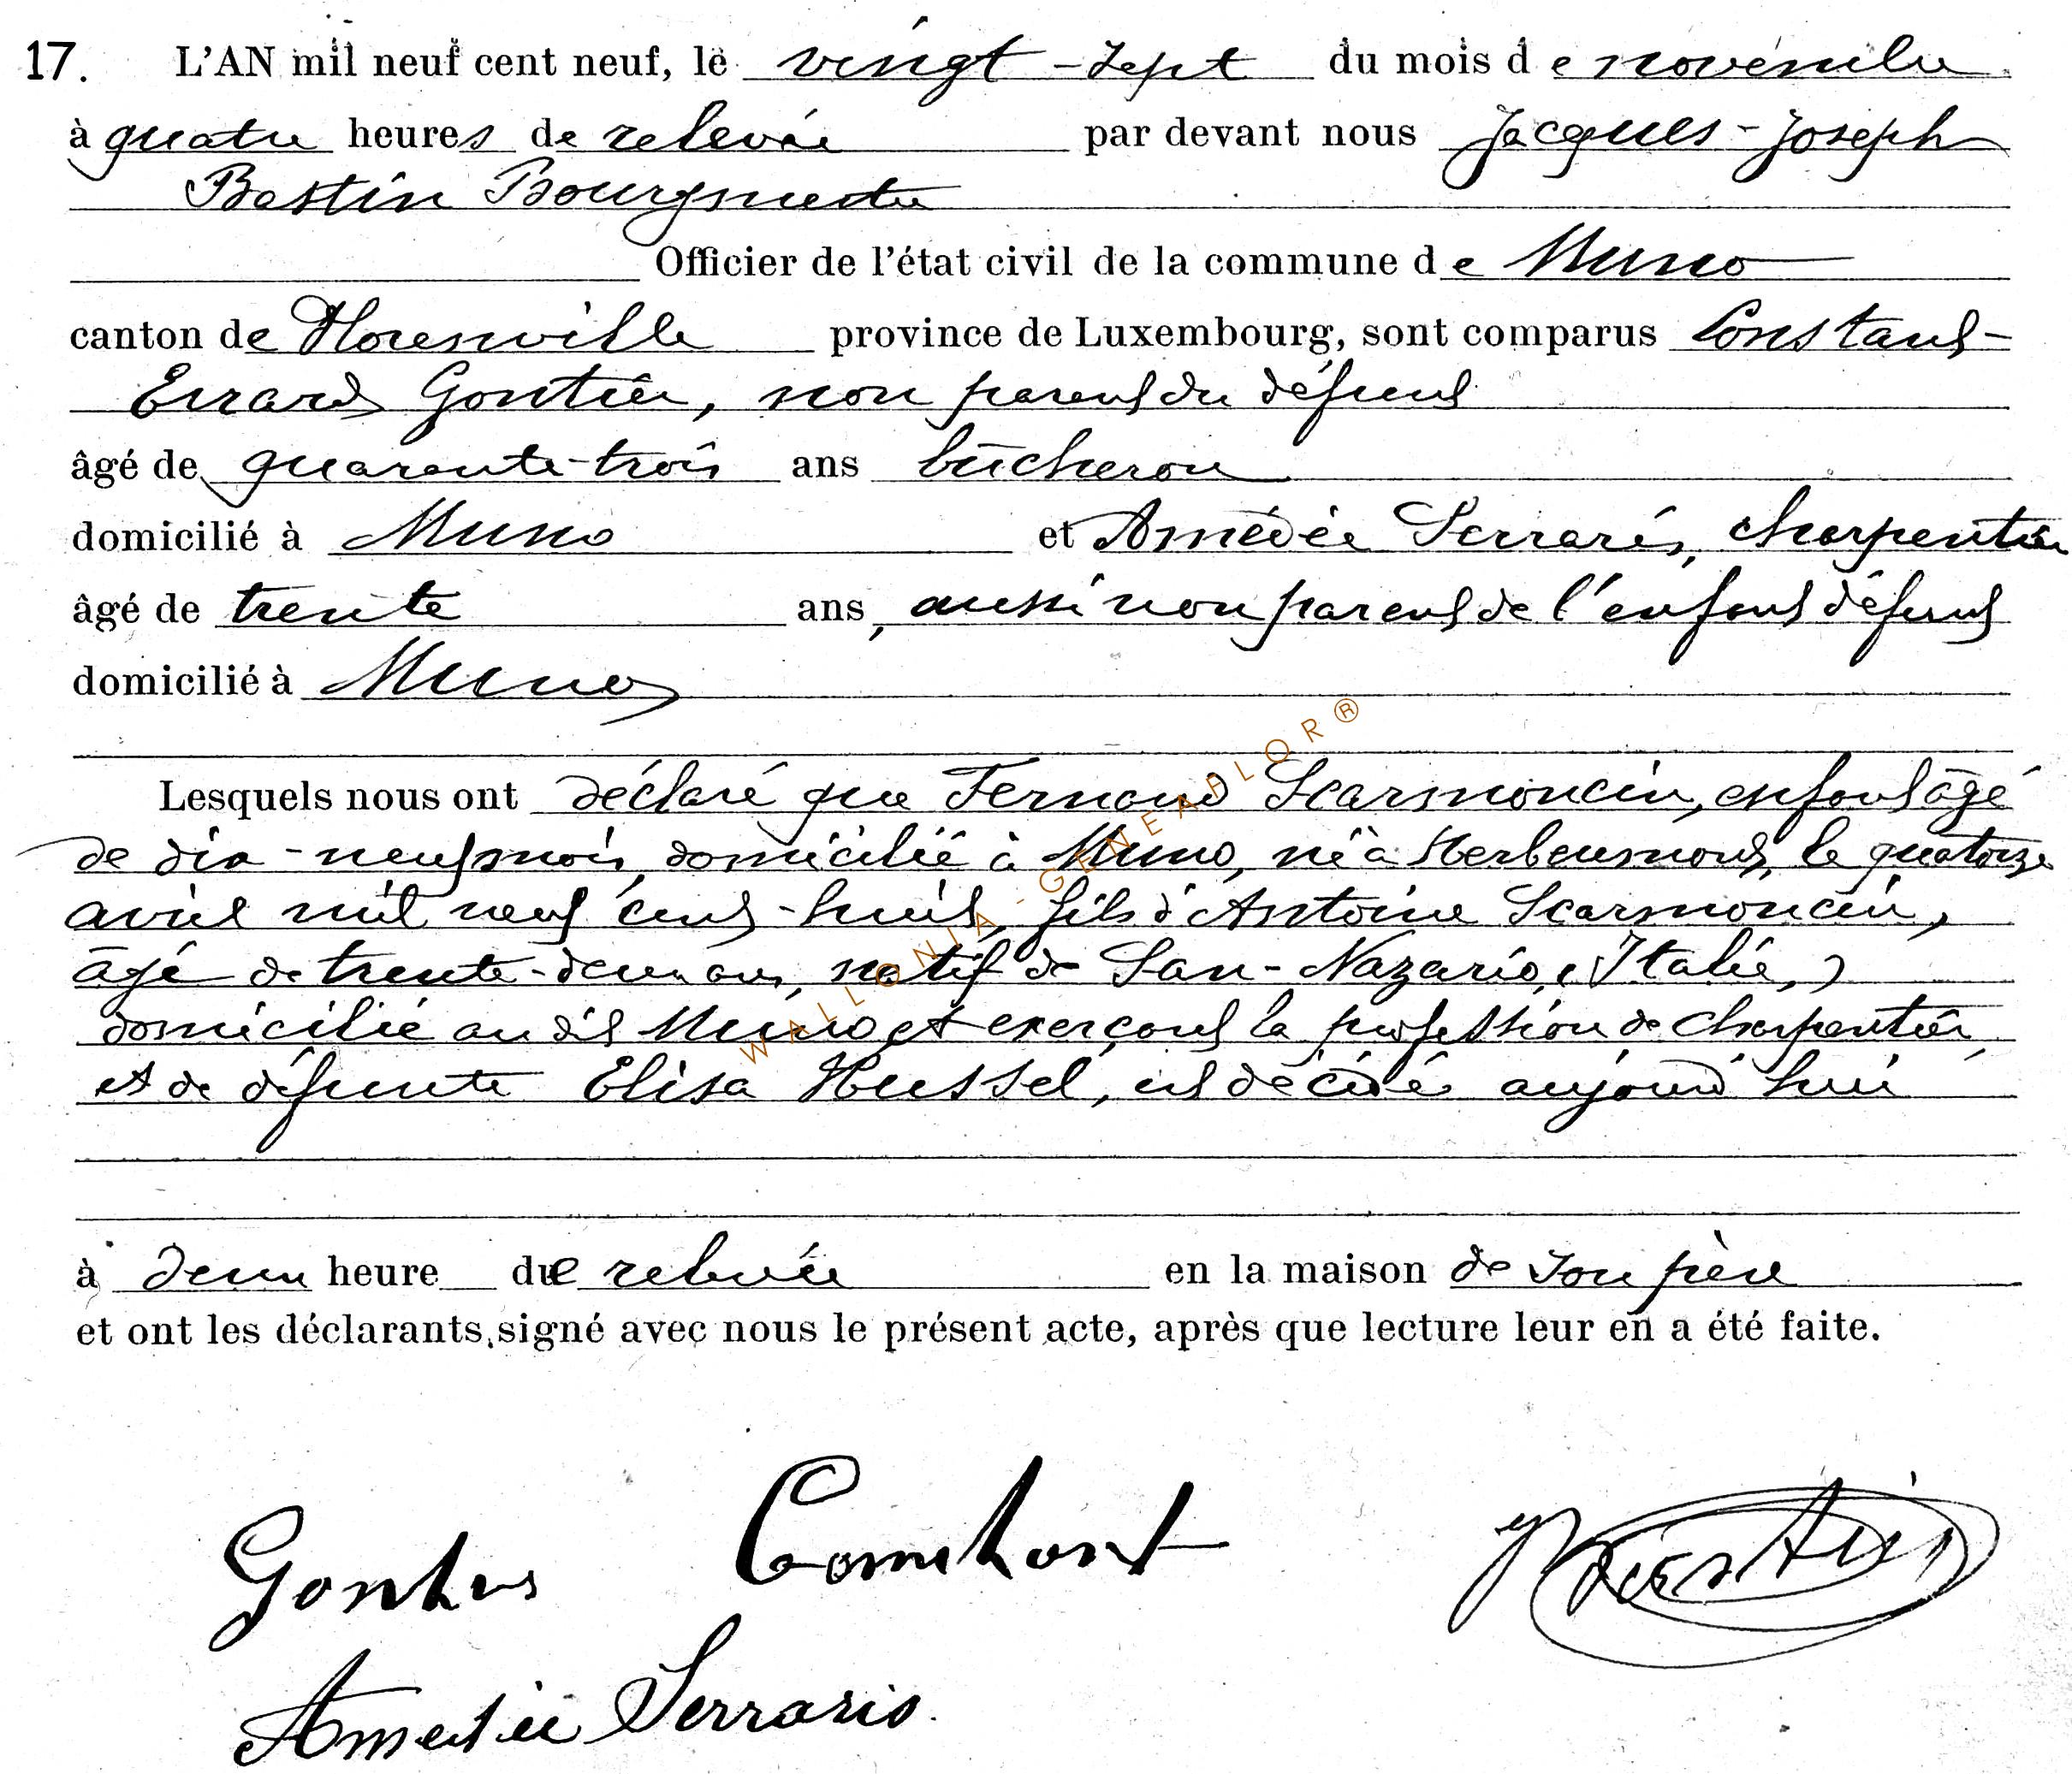 17. L'AN mil neuf cent neuf, le vingt-sept du mois de novembre
à quatre heures de relevée par devant nous Jacques-Joseph
Bastin Bourgmestre
Officier de l'état civil de la commune de Muno
canton de Florenville province de Luxembourg, sont comparus Constant-
Errard Gontier, non parent du défunt
âgé de quarante-trois ans bûcheron
domicilié à Muno et Amédée Serraris, charpentier
âgé de trente ans, aussi non parent de l'enfant défunt
domicilié à Muno
Lesquels nous ont déclaré que Fernand Scarmoncin, enfant âgé
de dix-neuf mois, domicilié à Muno, né à Herbeumont, le quatorze
avril mil neuf cent-huit, fils d'Antoine Scarmoncin,
âgé de trente-deux ans, natif de San-Nazario, (Italie,)
domicilié au dit Muno et exerçant la profession de charpentier,
et de défunte Elisa Hussel, est décédé aujourd'hui
à deux heure de relevée en la maison de son père
et ont les déclarants, signé avec nous le présent acte, après que lecture leur en a été faite.
Bastin
Amédée Serraris.
WALLONIA - GENEAPLOR®